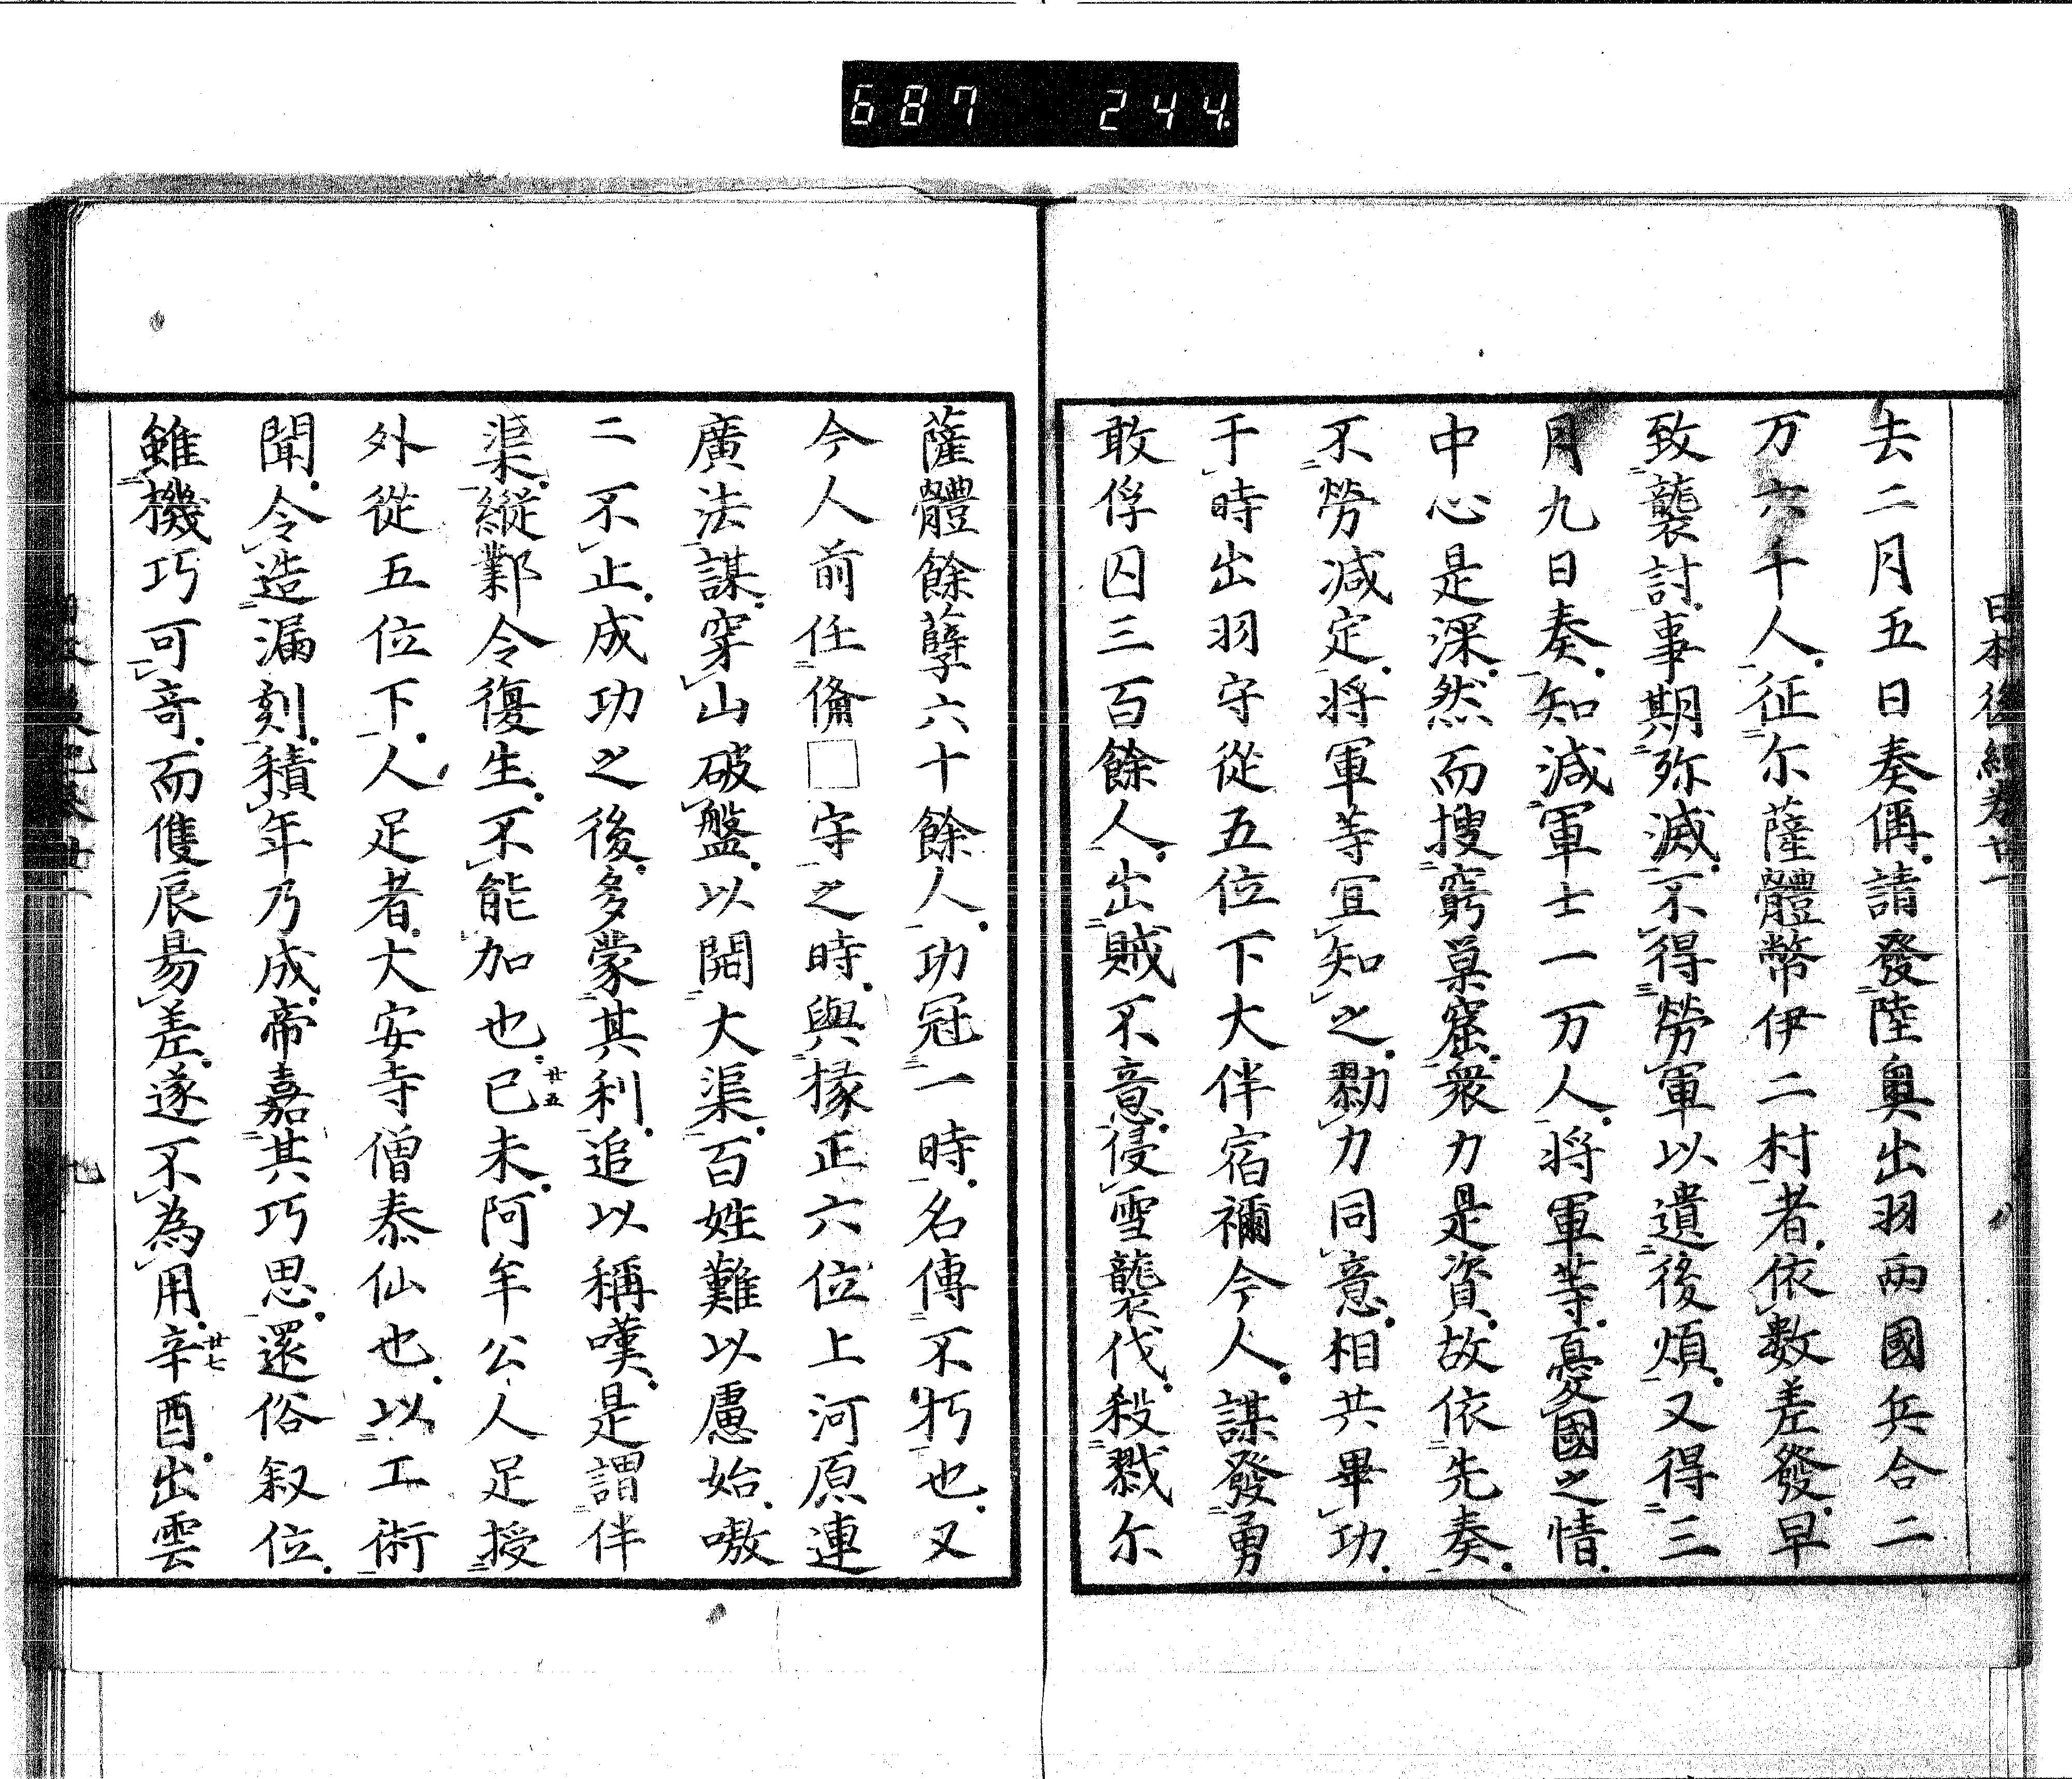 687 244
日本後紀卷廿一 八
去二月五日奏偁請發陸奧出羽兩國兵合二
万六千人征尓薩體幣伊二村者依數差發早
致襲討事期弥滅不得勞軍以遺後煩又得三
月九日奏知減軍士一万人將軍等憂國之情
中心是深然而搜窮巢窟衆力是資故依先奏
不勞减定將軍等宜知之勠力同意相共畢功
于時出羽守從五位下大伴宿禰今人謀發勇
敢俘囚三百餘人出賊不意侵雪襲伐殺戮尓
薩體餘孽六十餘人功冠一時名傳不朽也又
今人前任俻□守之時與掾正六位上河原連
廣法謀穿山破盤以開大渠百姓難以慮始嗷
二不止成功之後多蒙其利追以稱嘆是謂伴
渠縱鄴令復生不能加也己未阿牟公人足授
廿五
外從五位下人足者大安寺僧泰仙也以工術
聞令造漏刻積年乃成帝嘉其巧思還俗叙位
雖機巧可奇而隻辰易差遂不為用辛酉出雲
廿七
九